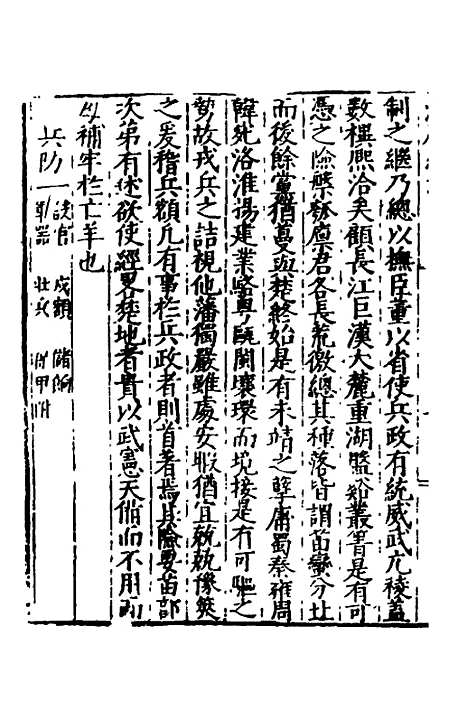 制之繼乃總以撫臣董以省使兵政有統威武亢稜蓋
數棋熙洽矣顧長江巨漢大麓重湖盤谿叢箐是有可
憑之險槃瓠廩君各長荒徼總其種落皆謂苗蠻分壯
而後餘黨猶蔓延楚終始是有未靖之孽庸蜀秦雍周
韓宛洛淮揚建業豁粵甌閩壤環而境接是有可驅之
勢故戎兵之詰視他藩獨嚴雖處安暇猶宜兢兢像筴
之爰稽兵額凡有事於兵政者則首著焉其險要苗部
次第有述欲使經畧楚地者貴以武憲天備而不用而
以補牢於亡羊也
兵防一 設官 戍額
軍器 壯兵